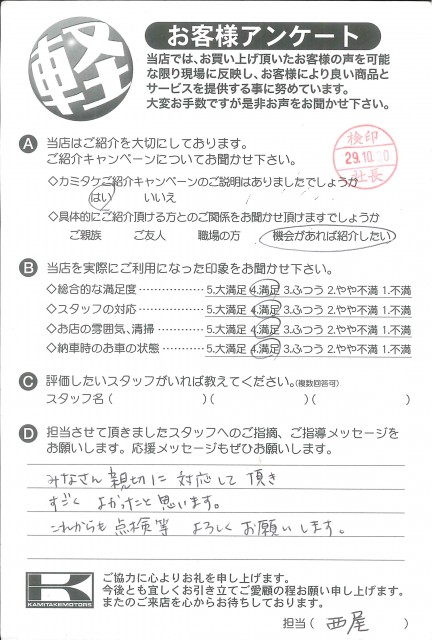 軽
お客様アンケート
当店では、お買い上げ頂いたお客様の声を可能
な限り現場に反映し、お客様により良い商品と
サービスを提供する事に努めています。
大変お手数ですが是非お声をお聞かせ下さい。
A 当店はご紹介を大切にしてあります。
ご紹介キャンペーンについてお聞かせ下さい。
検印
29.10.
社長
◇カミタケご紹介キャンペーンのご説明はありましたでしょうか
はい いいえ
◇具体的にご紹介頂ける方とのご関係をお聞かせ頂けますでしょうか
ご親族 ご友人 職場の方 機会があれば紹介したい
B 当店を実際にご利用になった印象をお聞かせ下さい。
◇総合的な満足度 ‥‥‥‥‥‥ 5.大満足 4.満足 3.ふつう 2.やや不満 1.不満
◇スタッフの対応 ‥‥‥‥‥‥ 5.大満足 4.満足 3.ふつう 2.やや不満 1.不満
◇お店の雰囲気、清掃 ‥‥‥‥ 5.大満足 4.満足 3.ふつう 2.やや不満 1.不満
◇納車時のお車の状態 ‥‥‥‥ 5.大満足 4.満足 3.ふつう 2.やや不満 1.不満
C 評価したいスタッフがいれば教えてください。(複数回答可)
スタッフ名 ( )( )( )
D 担当させて頂きましたスタッフへのご指摘、ご指導メッセージを
お願いします。応援メッセージもぜひお願いします。
みなさん親切に対応して頂き
すごく よかったと思います。
これからも点検等 よろしくお願いします。
K
KAMITAKEMOTORS
ご協力に心よりお礼を申し上げます。
今後とも宜しくお引き立てご愛顧の程お願い申し上げます。
またのご来店を心からお待ちしております。
担当 ( 西尾 )